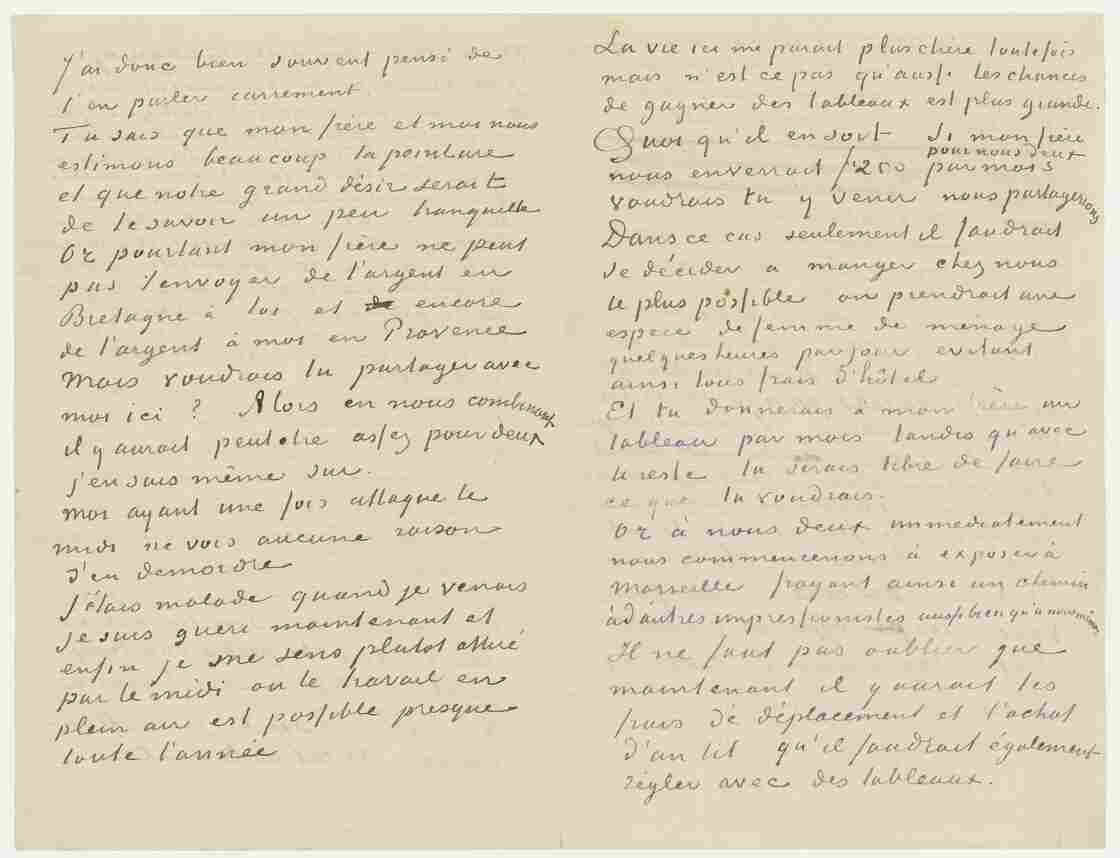 J'ai donc bien souvent pensé de
t'en parler carrement.
Tu sais que mon frère et moi nous
estimons beaucoup ta peinture
et que notre grand désir serait
de te savoir un peu tranquille
Or pourtant mon frère ne peut
pas t'envoyer de l'argent en
Bretagne à toi et de encore
de l'argent à moi en Provence
Mais voudrais tu partager avec
moi ici? Alors en nous combinant
il y aurait peutetre assez pour deux
j'en suis même sur.
Moi ayant une fois attaqué le
midi ne vois aucune raison
d'en demordre
J'étais malade quand je venais
je suis gueri maintenant et
enfin je me sens plutot attiré
par le midi ou le travail en
plein air est possible presque
toute l'année
La vie ici me parait plus chère toutefois
mais n'est ce pas qu'aussi les chances
de gagner des tableaux est plus grande.
Quoi qu'il en soit Si mon frère
nous enverrait f 250 par mois pour nous deux
voudrais tu y venir nous partagerions
Dans ce cas seulement il faudrait
se décider a manger chez nous
le plus possible on prendrait une
espece de femme de ménage
quelques heures par jour evitant
ainsi tous frais d'hôtel.
Et tu donnerais à mon frère un
tableau par mois tandis qu'avec
le reste tu serais libre de faire
ce que tu voudrais.
Or à nous deux immediatement
nous commencerions à exposer à
Marseille frayant ainsi un chemin
à d'autres impressionistes aussi bien qu'à nous mêmes
Il ne faut pas oublier que
maintenant il y aurait les
frais de déplacement et l'achat
d'un lit qu'il faudrait également
régler avec des tableaux.